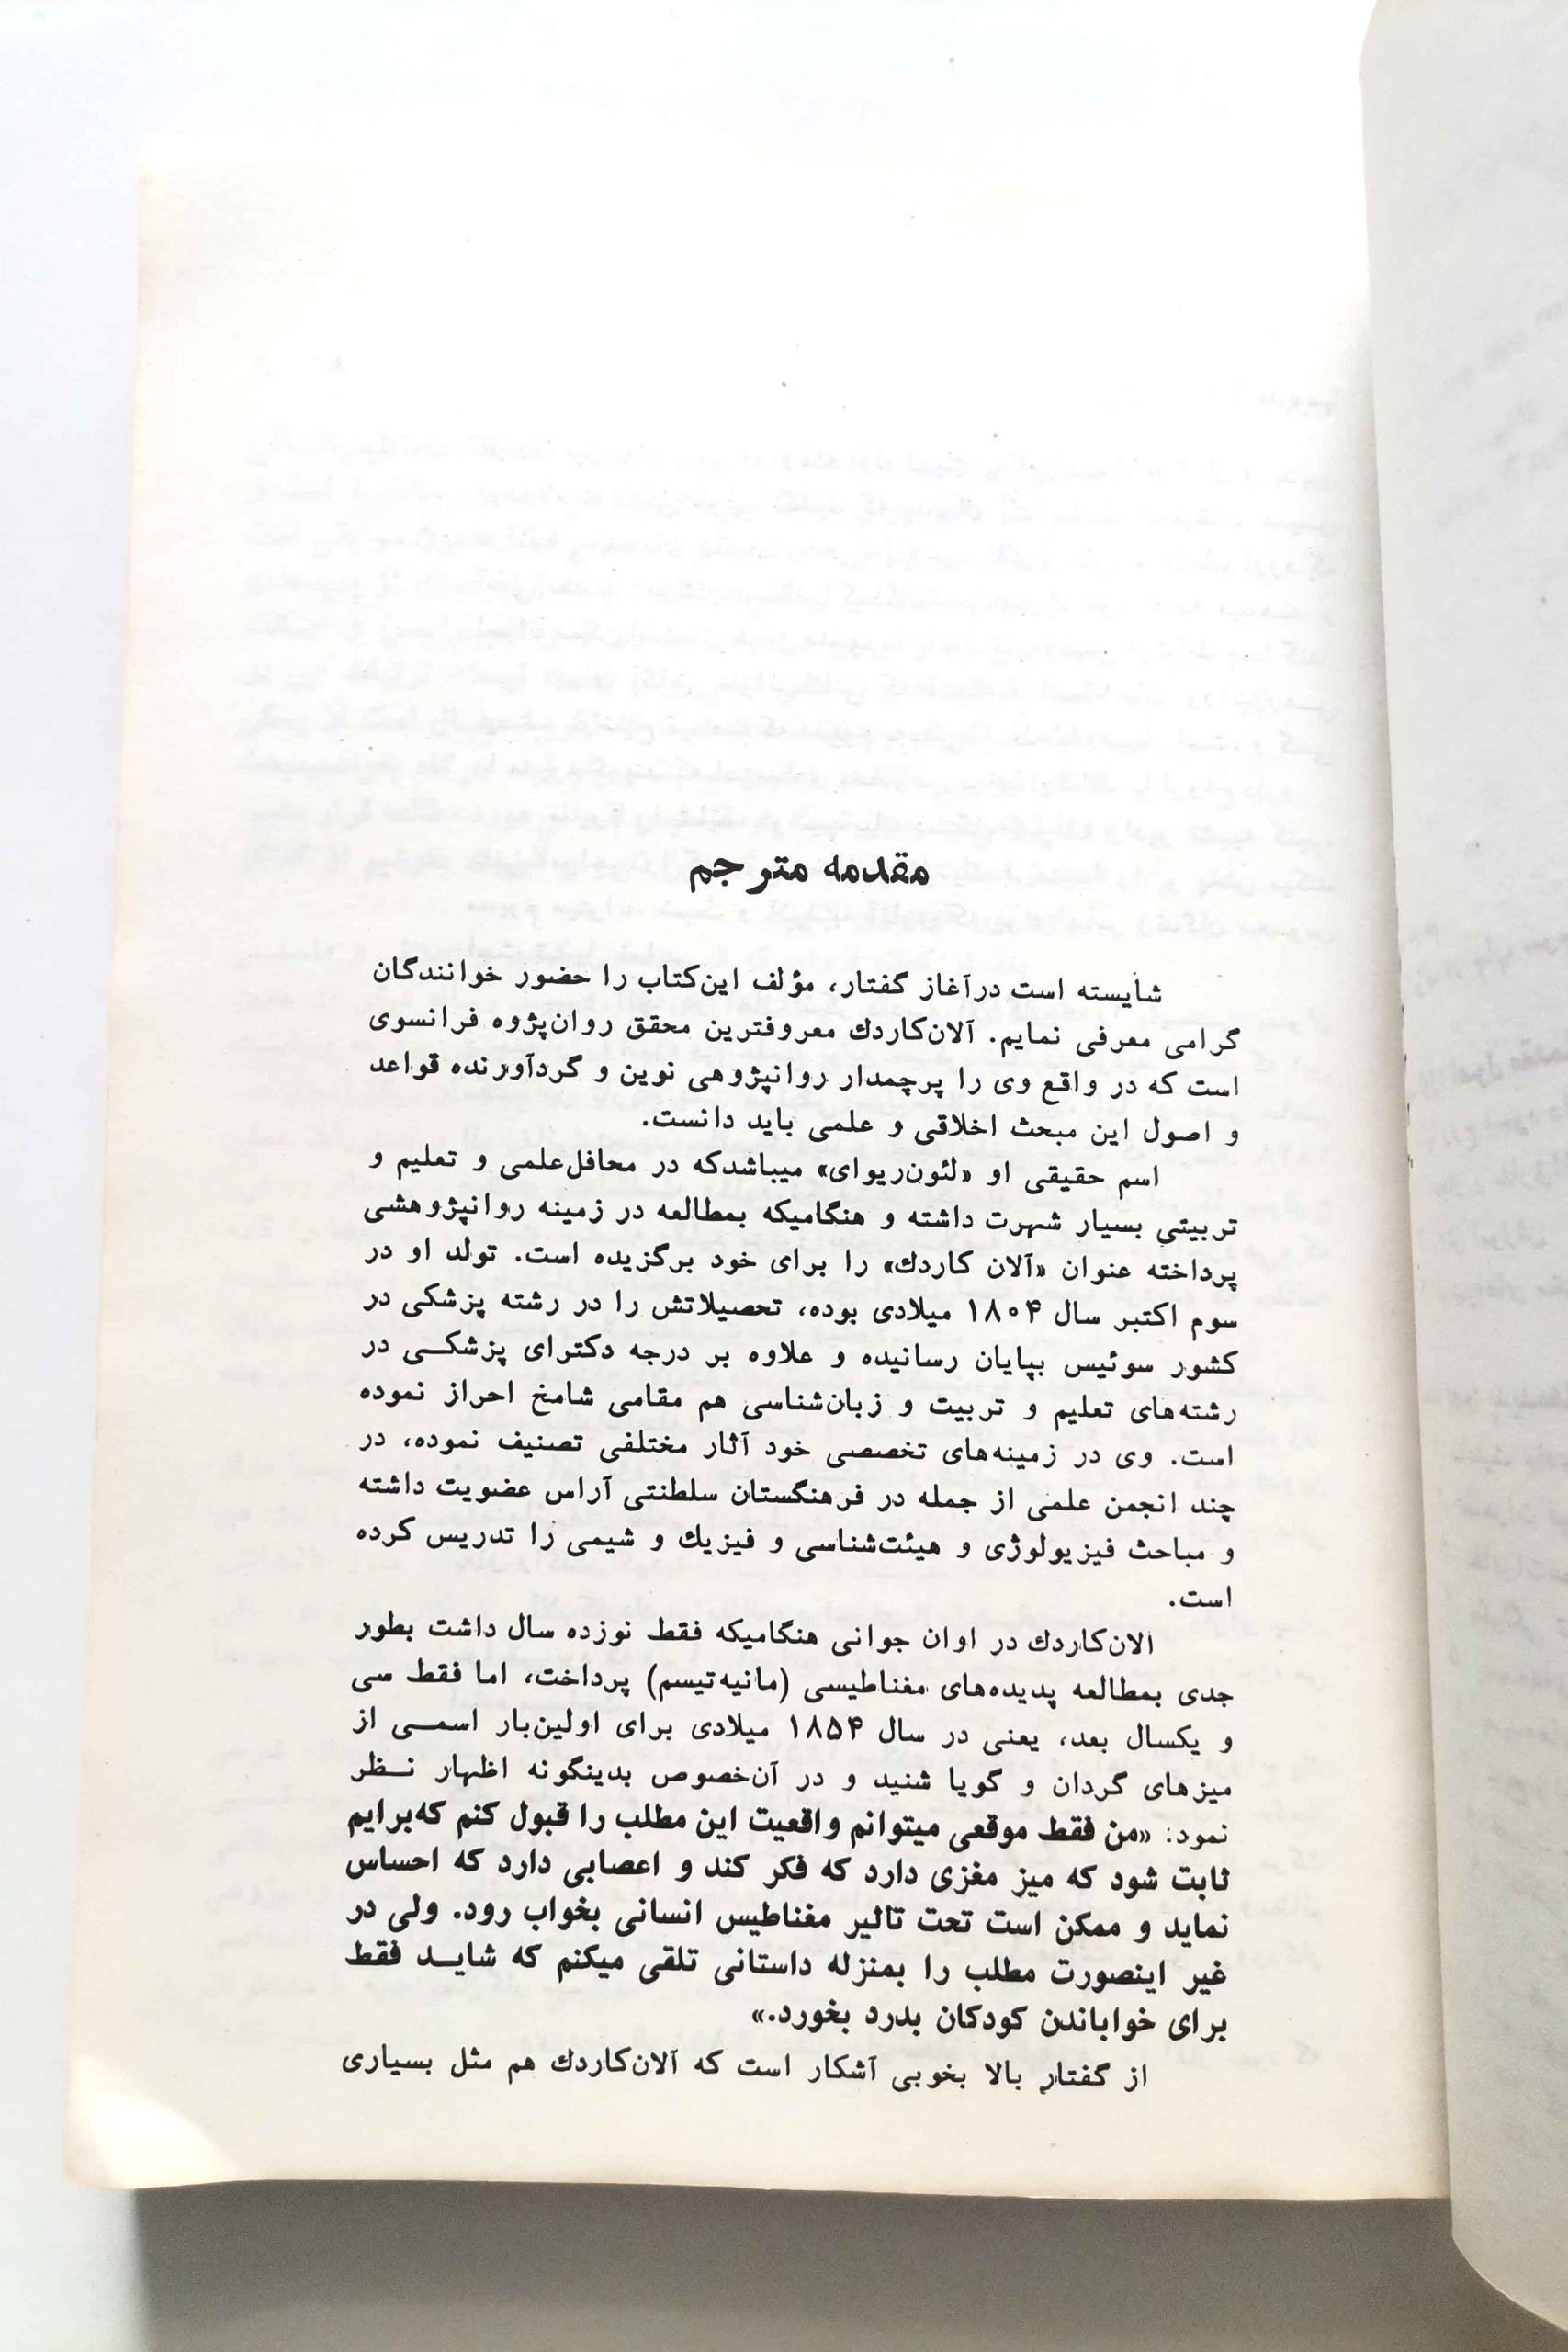 مقدمه مترجم
شایسته است درآغاز گفتار، مؤلف این‌کتاب را حضور خوانندگان
گرامی معرفی نمایم. آلان‌کاردك معروفترین محقق روان‌پژوه فرانسوی
است که در واقع وی را پرچمدار روانپژوهی نوین و گردآورنده قواعد
و اصول این مبحث اخلاقی و علمی باید دانست.
اسم حقیقی او «لئون‌ریوای» میباشدکه در محافل‌علمی و تعلیم و
تربیتی بسیار شهرت داشته و هنگامیکه بمطالعه در زمینه روانپژوهشی
پرداخته عنوان «آلان کاردك» را برای خود برگزیده است. تولد او در
سوم اکتبر سال ۱۸۰۴ میلادی بوده، تحصیلاتش را در رشته پزشکی در
کشور سوئیس بپایان رسانیده و علاوه بر درجه دکترای پزشکـی در
رشته‌های تعلیم و تربیت و زبان‌شناسی هم مقامی شامخ احراز نموده
است. وی در زمینه‌های تخصصی خود آثار مختلفی تصنیف نموده، در
چند انجمن علمی از جمله در فرهنگستان سلطنتی آراس عضویت داشته
و مباحث فیزیولوژی و هیئت‌شناسی و فیزیك و شیمی را تدریس کرده
است.
الان‌کاردك در اوان جوانی هنگامیکه فقط نوزده سال داشت بطور
جدی بمطالعه پدیده‌های مغناطیسی (مانیه‌تیسم) پرداخت، اما فقط سی
و یکسال بعد، یعنی در سال ۱۸۵۴ میلادی برای اولین‌بار اسمـی از
میزهای گردان و گویا شنید و در آن‌خصوص بدینگونه اظهار نـظر
نمود: «من فقط موقعی میتوانم واقعیت این مطلب را قبول کنم که‌برایم
ثابت شود که میز مغزی دارد که فکر کند و اعصابی دارد که احساس
نماید و ممکن است تحت تاثیر مغناطیس انسانی بخواب رود. ولی در
غیر اینصورت مطلب را بمنزله داستانی تلقی میکنم که شایـد فقط
برای خواباندن کودکان بدرد بخورد.»
از گفتار بالا بخوبی آشکار است که آلان‌کاردك هم مثل بسیاری